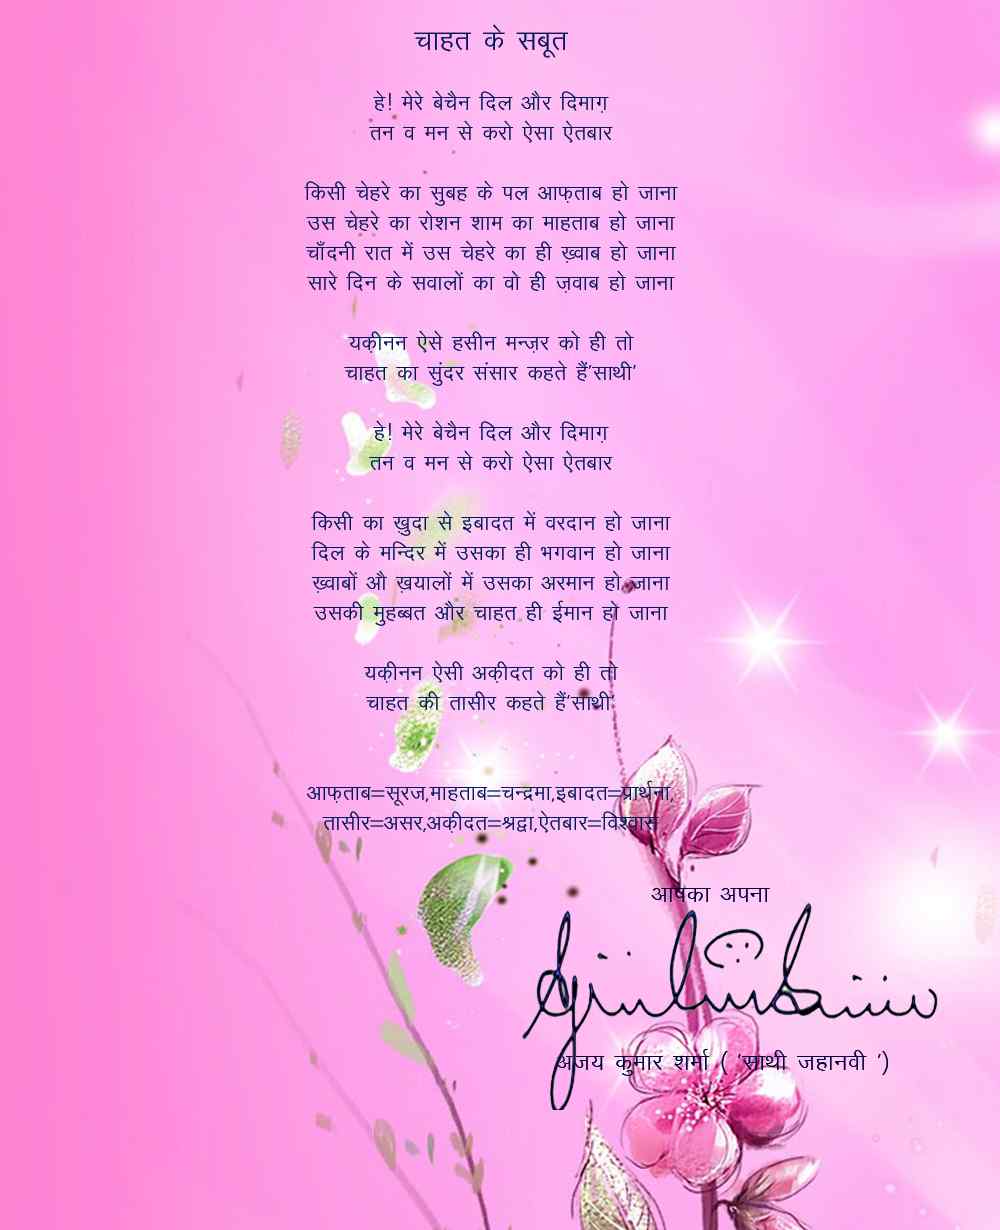 चाहत के सबूत
हे! मेरे बेचैन दिल और दिमाग़
तन व मन से करो ऐसा ऐतबार
किसी चेहरे का सुबह के पल आफ़ताब हो जाना
उस चेहरे का रोशन शाम का माहताब हो जाना
चाँदनी रात में उस चेहरे का ही ख़्वाब हो जाना
सारे दिन के सवालों का वो ही ज़वाब हो जाना
यक़ीनन ऐसे हसीन मन्ज़र को ही तो
चाहत का सुंदर संसार कहते हैं'साथी'
हे! मेरे बेचैन दिल और दिमाग़
तन व मन से करो ऐसा ऐतबार
किसी का ख़ुदा से इबादत में वरदान हो जाना
दिल के मन्दिर में उसका ही भगवान हो जाना
ख़्वाबों औ ख़यालों में उसका अरमान हो जाना
उसकी मुहब्बत और चाहत ही ईमान हो जाना
यक़ीनन ऐसी अक़ीदत को ही तो
चाहत की तासीर कहते हैं'साथी'
आफ़ताब=सूरज,माहताब=चन्द्रमा,इबादत=प्रार्थना,
तासीर=असर,अक़ीदत=श्रद्वा,ऐतबार=विश्वास
आपका अपना
अजय कुमार शर्मा ( 'साथी जहानवी ')